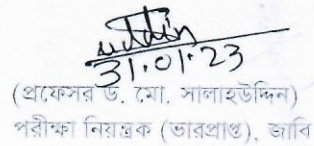 uddin
31.01.23
(প্রফেসর ড. মো. সালাহউদ্দিন)
পরীক্ষা নিয়ন্ত্রক (ভারপ্রাপ্ত), জাবি